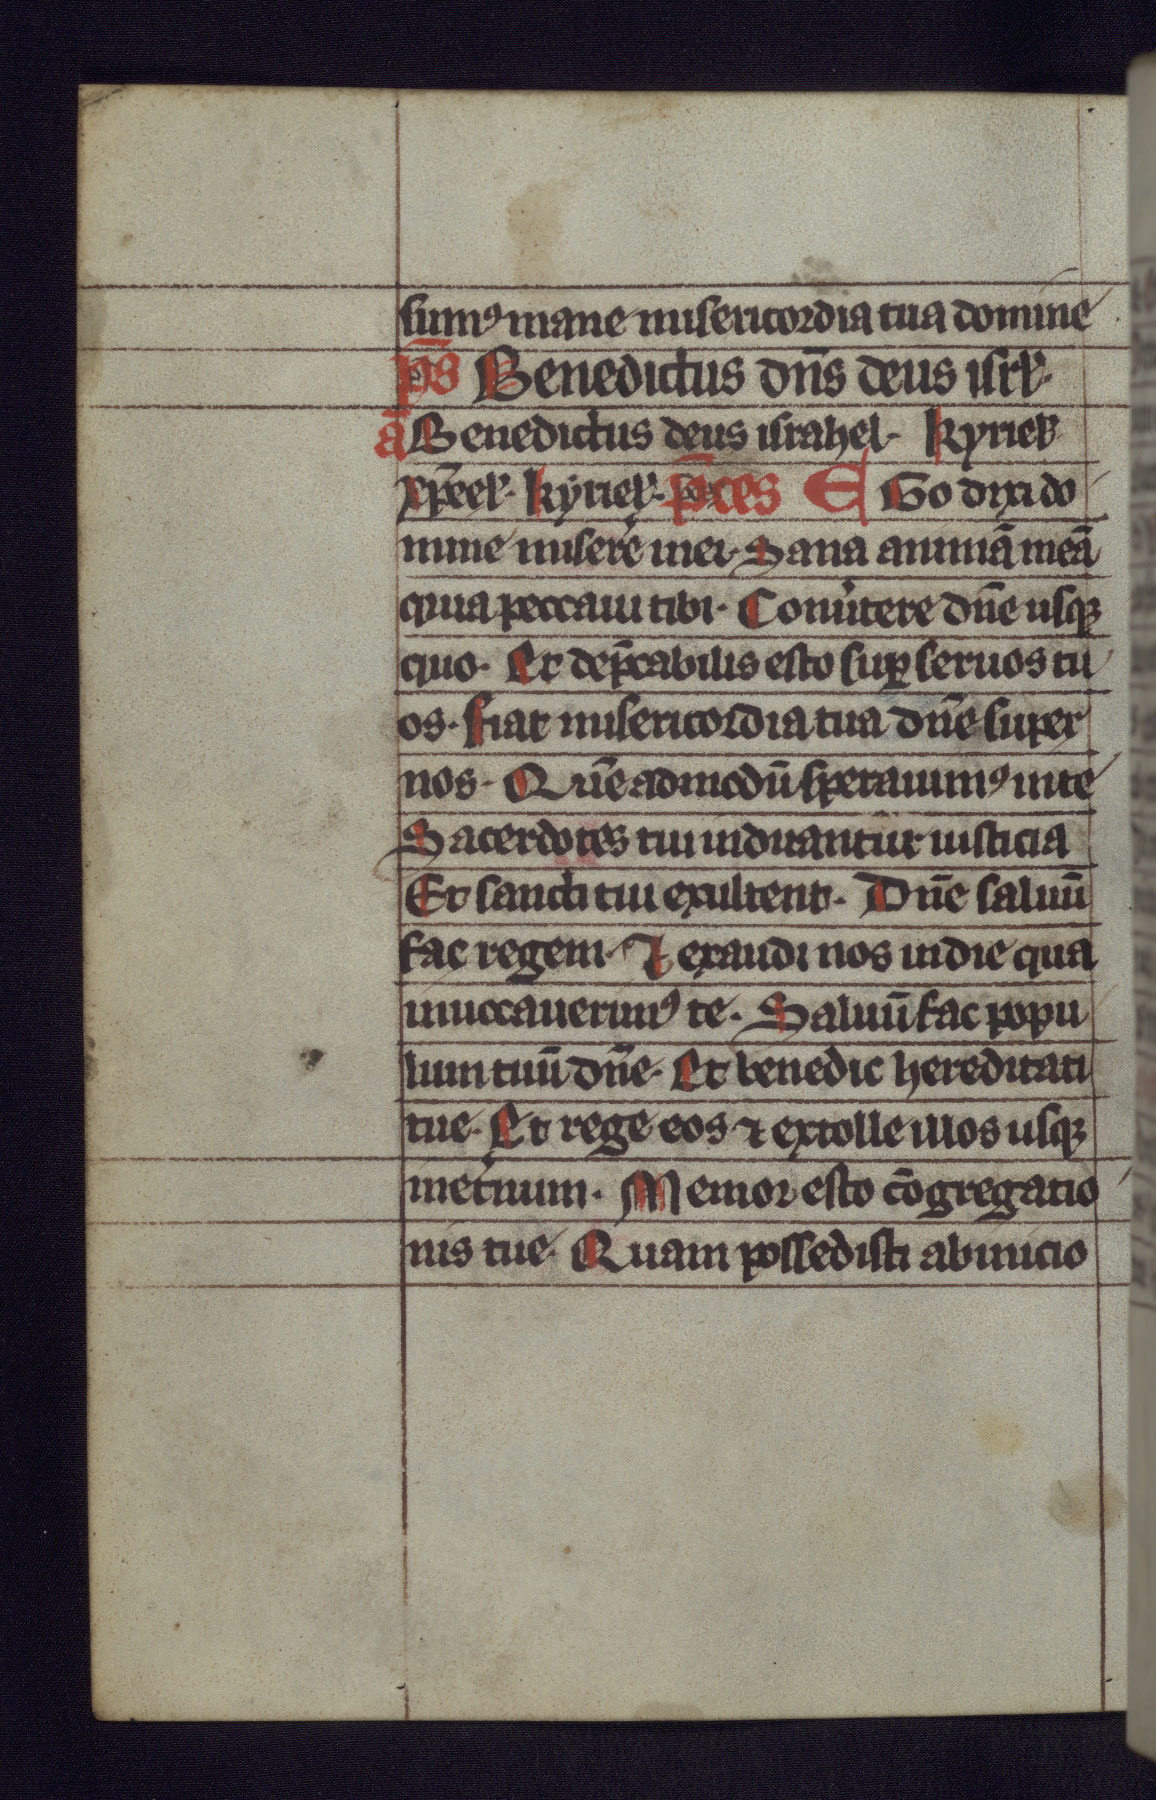 sumꝰ mane misericordia tua domine
p̄s Benedictus dn̄s deus isrl̄.
a᷑ Benedictus deus israhel. kyriel̄
xp̄eel̄. kyriel̄. p̄ces EGo dixi do
mine miserē mei. Sana animā meā
quia peccaui tibi. Conu̾tere dn̄e usqꝫ
quo. Et dep̄cabilis esto suꝑ seruos tu
os. fiat misericordia tua dn̄e super
nos. Quē admodū sperauimꝰ in te
Sacerdotes tui induantur iusticia
Et sancti tui exultent. Dn̄e saluū
fac regem. ⁊ exaudi nos in die qua
inuocauerimꝰ te. Saluū fac popu
lum tuū dn̄e. Et benedic hereditati
tue. Et rege eos ⁊ extolle illos usqꝫ
inet̾num. Memor esto cōgregatio
nis tue. Quam possedisti ab inicio